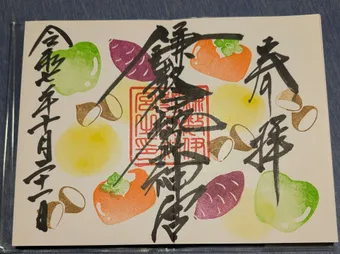 奉拝
鎌数伊勢大神宮
令和七年十月二十一日